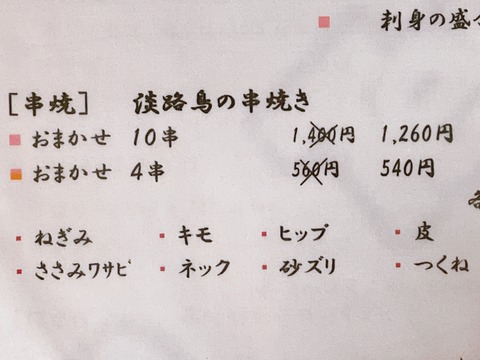 刺身の盛
[串焼] 淡路鳥の串焼き
おまかせ 10串 1,400円 1,260円
おまかせ 4串 560円 540円
各
ねぎみ キモ ヒップ 皮
ささみワサビ ネック 砂ズリ つくね